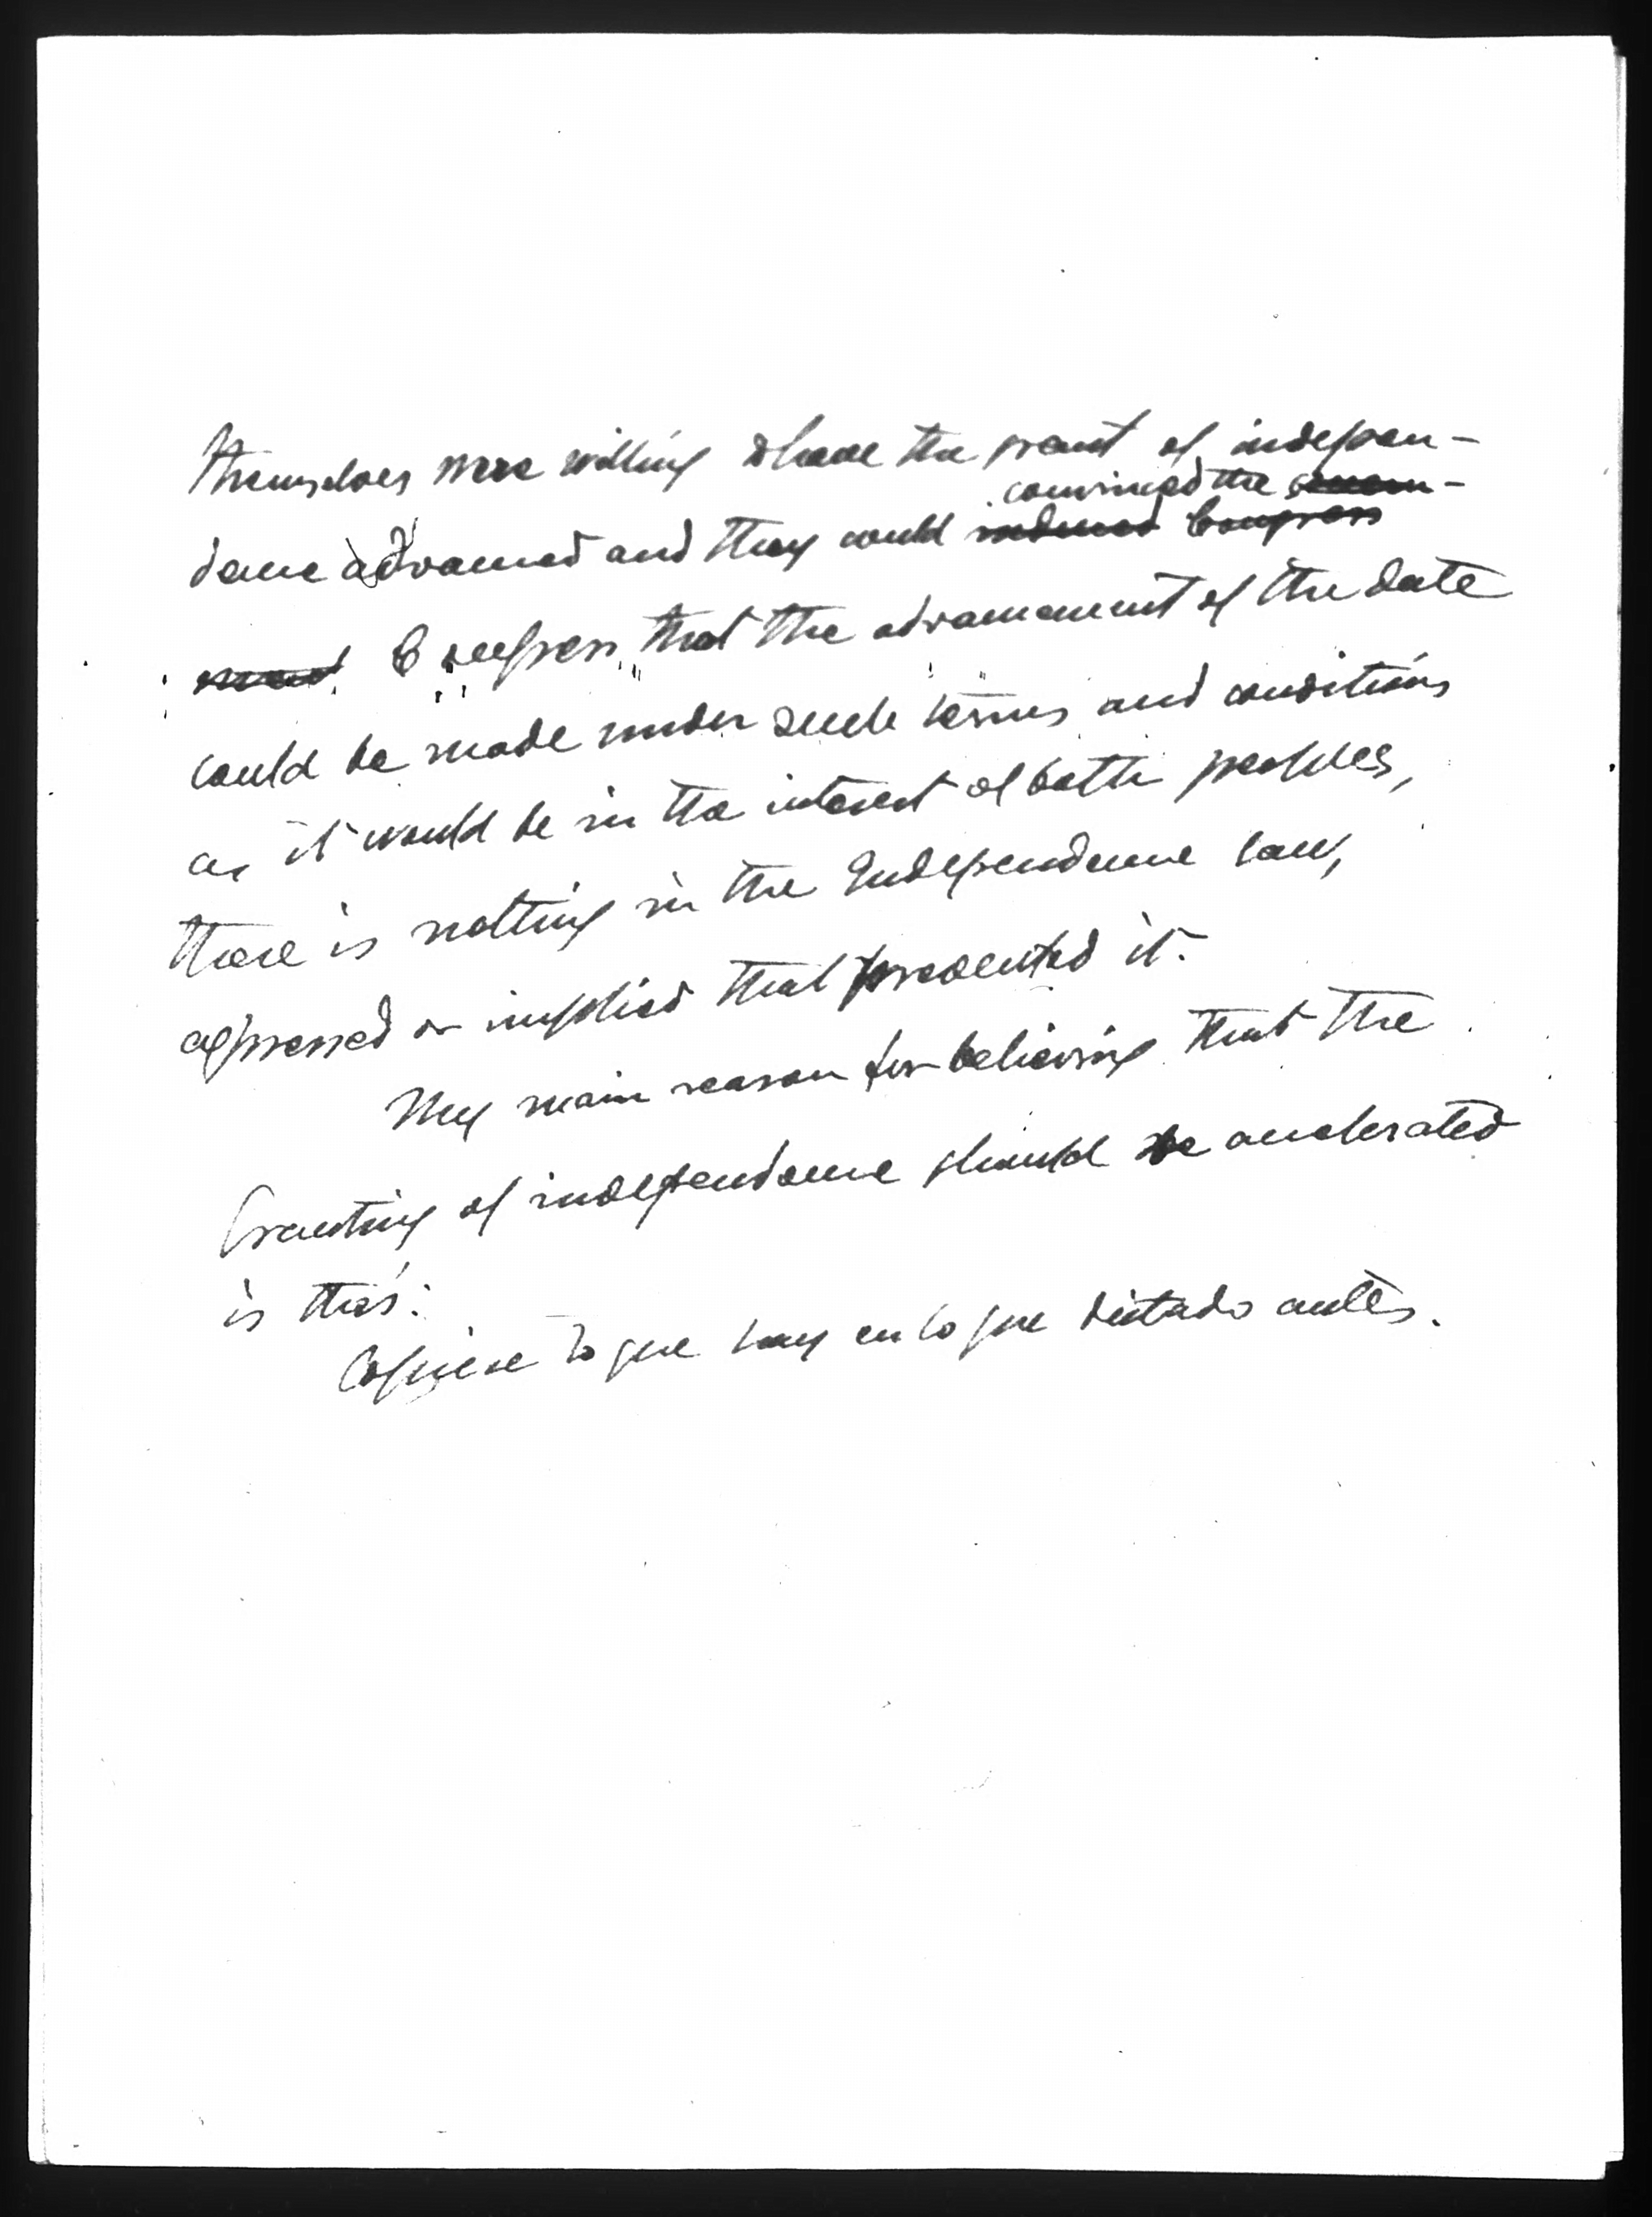 themselves were willing to have the grant of indepen-
dence advanced and they could convinced the
Congress that the advancement of the date
could be made under such terms and conditions
as it would be in the interest of both peoples,
there is nothing in the Independence law,
expressed or implied that prevented it.
My main reason for believing that the
Granting of independence should be accelerated
is this:
Copiese lo que hay en lo que dictado antes.